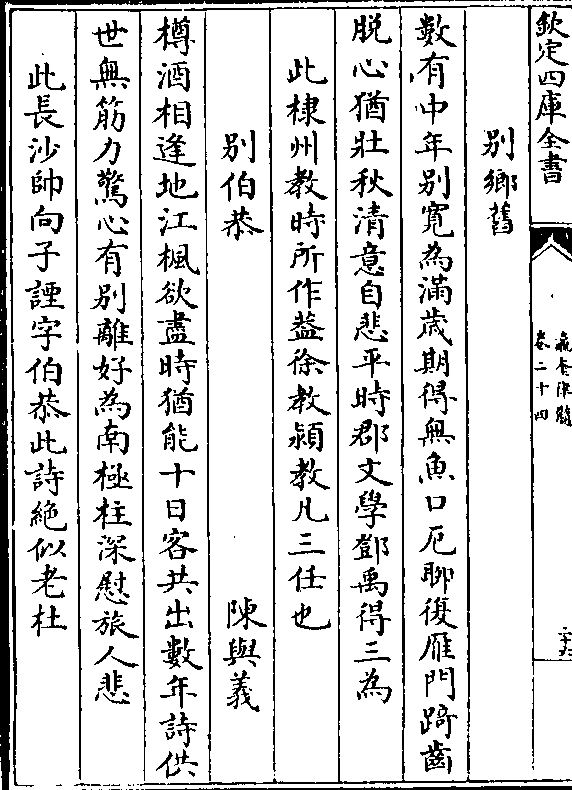 欽定四庫全書
瀛奎律髓
卷二十四
二十六
别鄉舊
數有中年别寛為滿歲期得無魚口厄聊復雁門踦齒
脱心猶壯秋清意自悲平時郡文學鄧禹得三為
此棣州教時所作葢徐教潁教凡三任也
别伯恭 陳與義
樽酒相逢地江楓欲盡時猶能十日客共出數年詩供
世無筋力驚心有别離好為南極柱深慰旅人悲
此長沙帥向子諲字伯恭此詩絶似老杜